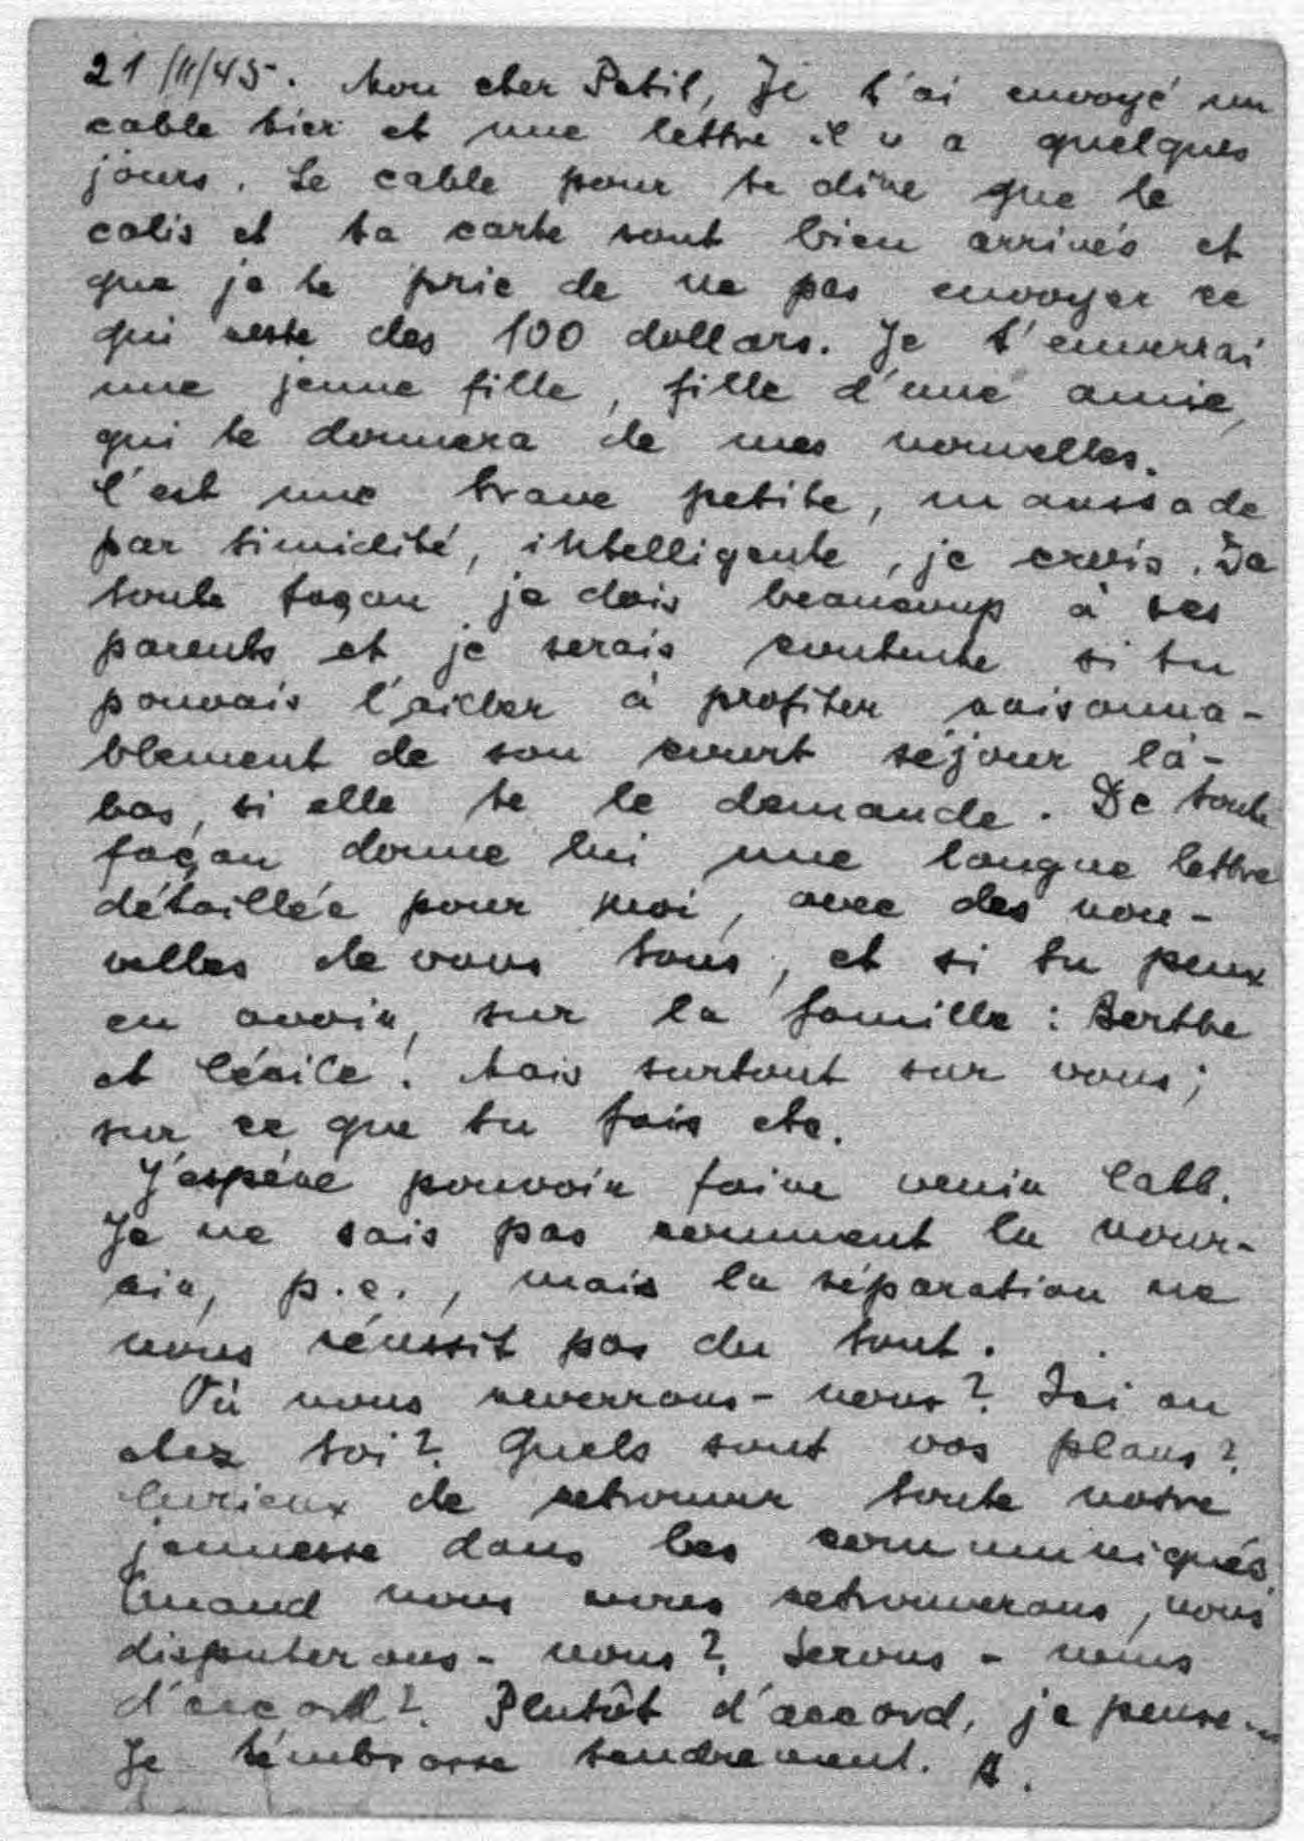 21/II/45. Mon cher Petit, Je t'ai envoyé un
cable hier et une lettre il y a quelques
jours. Le cable pour te dire que le
colis et ta carte sont bien arrivés et
que je te prie de ne pas envoyer ce
qui reste des 100 dollars. Je t'enverrai
une jeune fille, fille d'une amie,
qui te donnera de mes nouvelles.
C'est une brave petite, maussade
par timidité, intelligente, je crois. De
toute façon je dois beaucoup à ses
parents et je serais contente si tu
pouvais l'aider à profiter raisonna-
blement de son court séjour là-
bas, si elle te le demande. De toute
façon donne lui une longue lettre
détaillée pour moi, avec des nou-
velles de vous tous, et si tu peux
en avoir, sur la famille : Berthe
et Cécile. Mais surtout sur vous;
sur ce que tu fais etc.
J'espère pouvoir faire venir
Je ne sais pas comment le nour-
rir, p.e., mais la séparation ne
nous réussit pas du tout.
Où nous reverrons-nous? Ici ou
chez toi? Quels sont vos plans?
Curieux de retrouver toute notre
jeunesse dans les communiqués.
Quand nous nous retrouverons, nous
disputerons-nous? Serons-nous
d'accord? Plutôt d'accord, je pense...
Je t'embrasse tendrement. A.